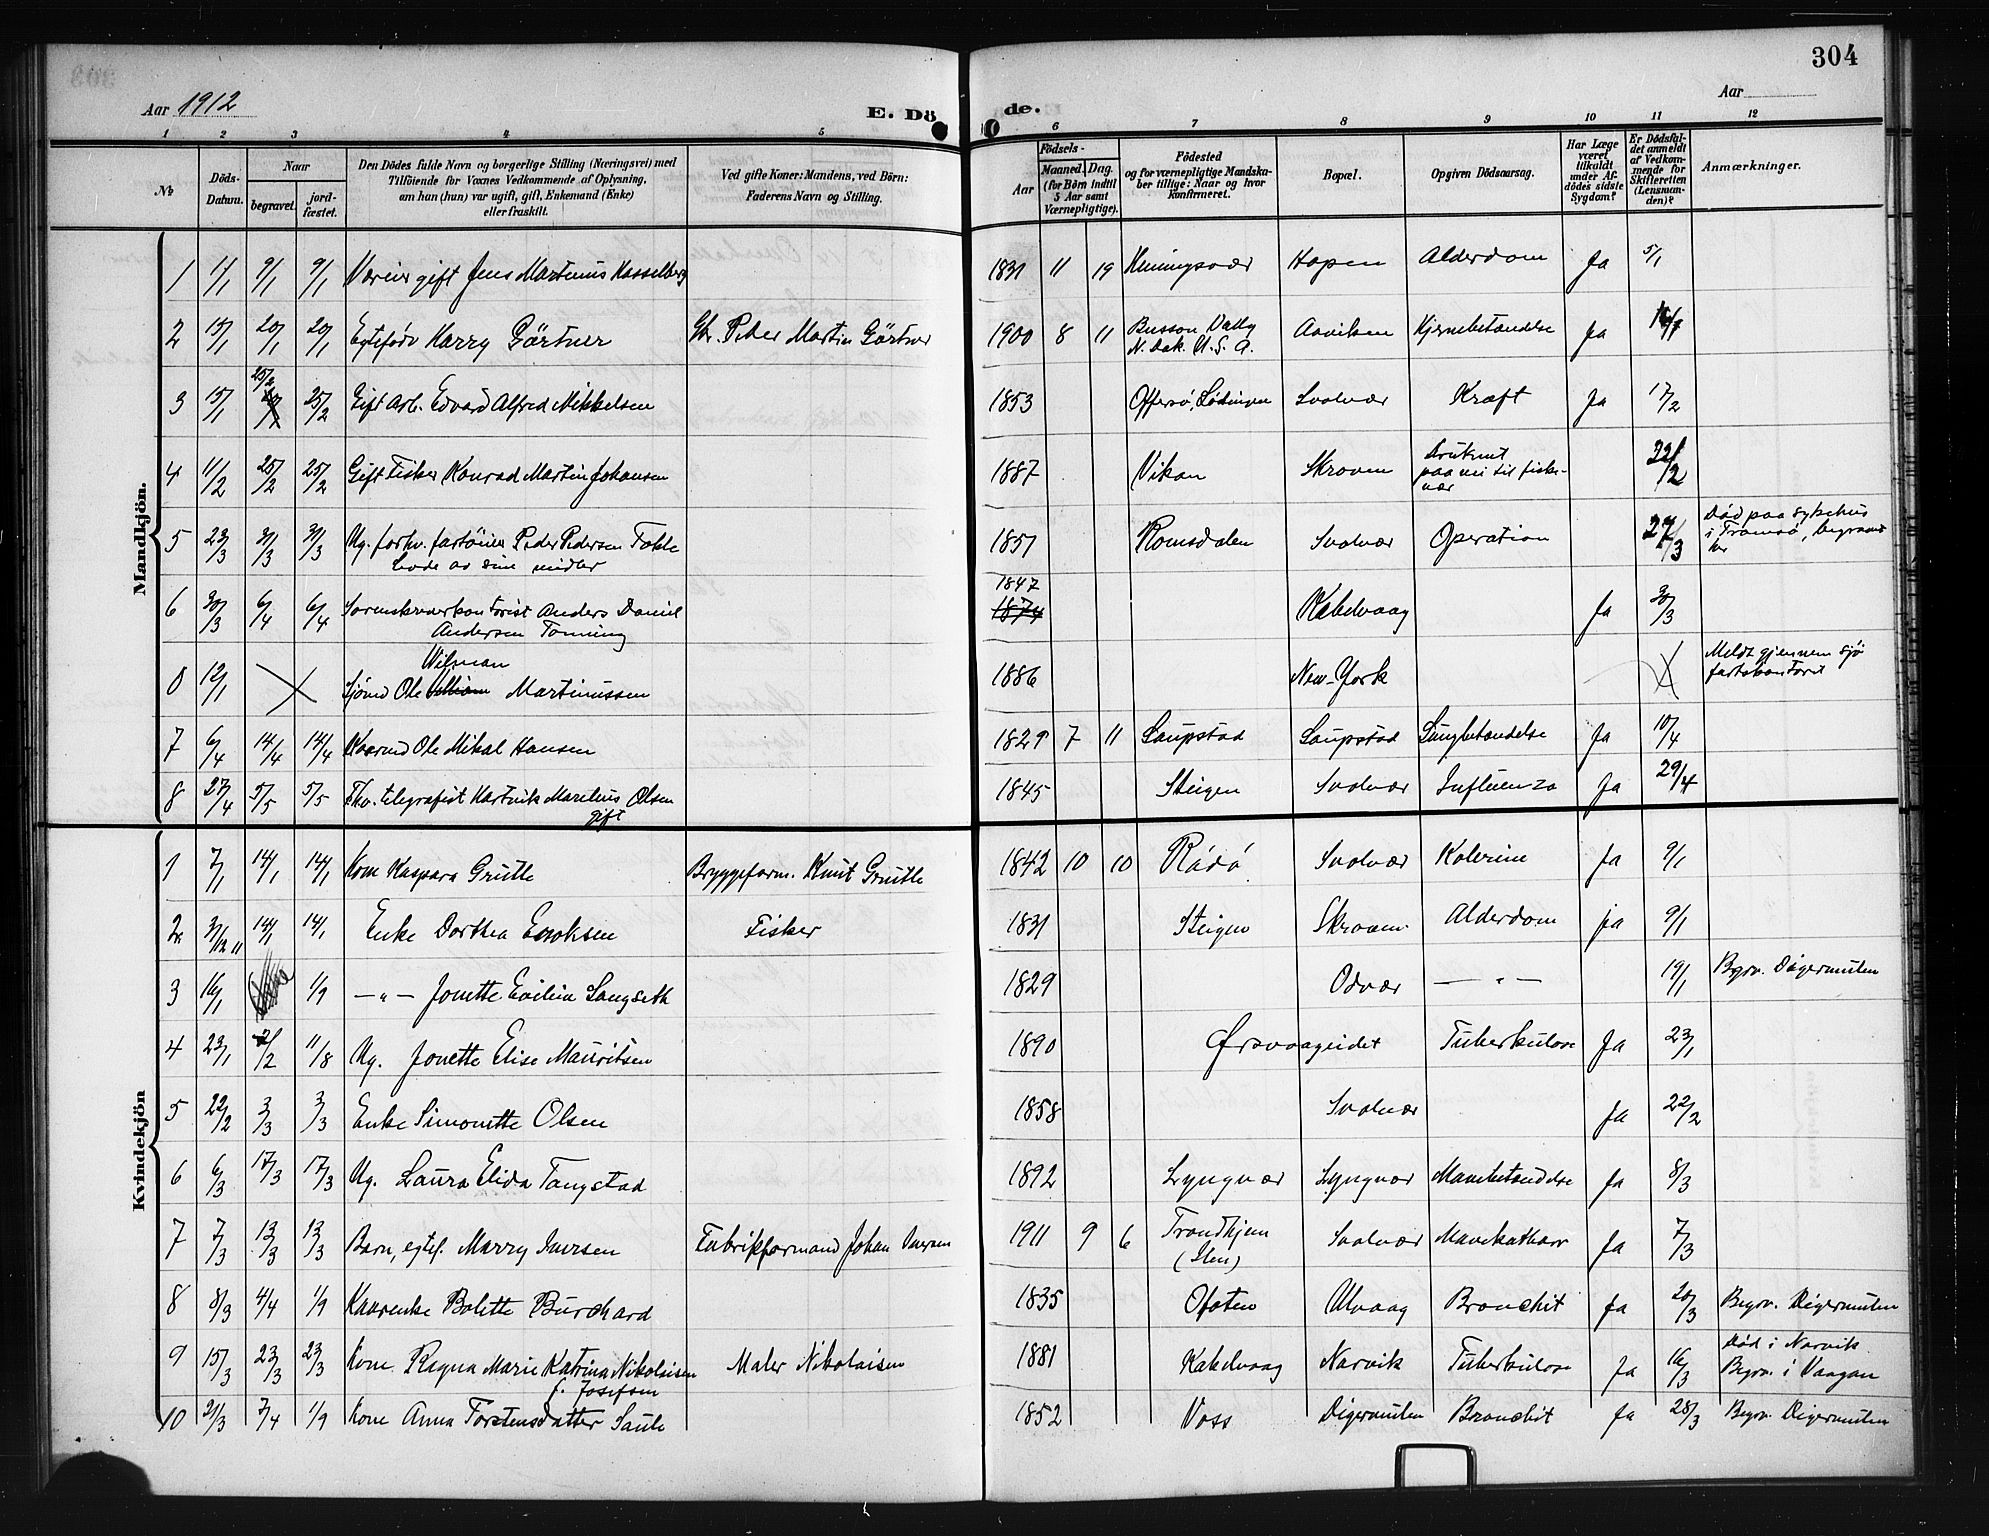 304
Aar 1912
E. Dö
de.
Aar
1 2 3 4 5 6 7 8 9 10 11 12
№
Döds-Datum.
Naar
begravet.
jord-fæstet.
Den Dödes fulde Navn og borgerlige Stilling (Næringsvei) med
Tilföiende for Voxnes Vedkommende af Oplysning,
om han (hun) var ugift, gift, Enkemand (Enke)
eller fraskilt.
Ved gifte Koner: Mandens, ved Börn:
Faderens Navn og Stilling.
Födsels-
Aar
Maaned. Dag.
(for Börn indtil
5 Aar samt
Værnepligtige).
Födested
og for værnepligtige Mandska-
ber tillige: Naar og hvor
Konfirmeret.
Bopæl.
Opgiven Dödsaarsag.
Har Læge
været
tilkaldt
under Af-
dödes sidste
Sygdom?
Er Dödsfal-
det anmeldt
af Vedkom-
mende for
Skifteretten
(Lensman-
den)?
Anmærkninger.
Mandkjön.
1 1/1 9/1 9/1 Væreier gift Jens Martinus Hasselberg 1831 11 19 Heningsvær Hopen Alderdom Ja 5/1
2 13/1 20/1 20/1 Egtefødt Harry Gärtner Gbr. Peder Martin Gärtner 1900 8 11 Busson Vally N. Dak. U.S.A. Aaviken Hjernebetændelse Ja
3 15/1 25/2 25/2 Gift Arb. Edvard Alfred Mikkelsen 1853 Offersø, Lødingen Svolvær Kræft Ja 17/2
4 11/2 25/2 25/2 Gift Fisker Konrad Martin Johansen 1887 Vikan Skroven Druknet paa vei til fiskevær 22/2
5 23/3 31/3 31/3 Ug. forhv. fartøieier Peder Pedersen Tokle 1851 Romsdalen Svolvær Operation 27/3 Død paa sykehus
Levde av sine midler i Tromsø, begravet her
6 30/3 6/4 6/4 Sorenskriverkontorist Anders Daniel Andersen Tonning 1847 1874 Kabelvaag Ja 30/3
0 12/1 Sjømd Ole Wilman Martinussen 1886 New-York Meldt gjennem sjøfartskontoret
7 6/4 14/4 14/4 Kaarmd Ole Mikal Hansen 1829 7 11 Laupstad Laupstad Lungbetændelse Ja 10/4
8 27/4 5/5 5/5 Fhv. telegrafist Hartvik Marelius Olsen gift 1845 Steigen Svolvær Influenza Ja 29/4
Kvindekjön
1 7/1 14/1 14/1 Kone Kaspara Gruttle Bryggeform. Knut Gruttle 1842 10 10 Rödö Svolvær Kolerine Ja 9/1
2 31/12 11 14/1 14/1 Enke Dorthea Enoksen Fisker 1831 Steigen Skroven Alderdom ja 9/1
3 16/1 1/9 —„— Jonette Emilie Langseth 1829 Odvær —„— 19/1 Begrv. Digermulen
4 23/1 2/2 11/8 Ug. Jonette Elise Mauritsen 1890 Øravaageidet Tuberkulose Ja 23/1
5 22/2 3/3 3/3 Enke Simonette Olsen 1858 Svolvær Ja 22/2
6 6/3 17/3 17/3 Ug. Laura Elida Tangstad 1892 Lyngvær Lyngvær Mavebetændelse Ja 8/3
7 7/3 13/3 13/3 Barn, egtef. Marry Iversen Fabrikformand Johan Iversen 1911 9 6 Trondhjem (Ilen) Svolvær Mavekatharr Ja 7/3
8 8/3 4/4 1/9 Kaarenke Bolette Burchard 1835 Ofoten Ulvaag Bronchit Ja 20/3 Begrv. Digermulen
9 15/3 23/3 23/3 Kone Ragna Marie Katrina Nikolaisen f. Josefsen Maler Nikolaisen 1881 Kabelvaag Narvik Tuberkulose Ja 16/3 Død i Narvik Begrv. i Vaagan
10 21/3 7/4 1/9 Kone Anna Torstensdatter Saule 1852 Voss Digermulen Bronchit Ja 28/3 Begrv. Digermulen